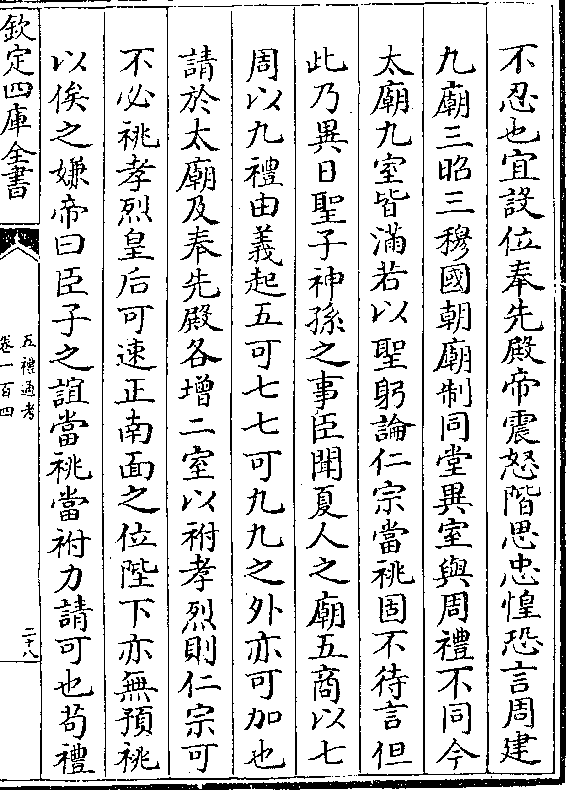 不忍也宜設位奉先殿帝震怒階思忠惶恐言周建
九廟三昭三穆國朝廟制同堂異室與周禮不同今
太廟九室皆滿若以聖躬論仁宗當祧固不待言但
此乃異日聖子神孫之事臣聞夏人之廟五商以七
周以九禮由義起五可七七可九九之外亦可加也
請於太廟及奉先殿各增二室以祔孝烈則仁宗可
不必祧孝烈皇后可速正南面之位陛下亦無預祧
以俟之嫌帝曰臣子之誼當祧當祔力請可也苟禮
欽定四庫全書
五禮通考
卷一百四
二十八